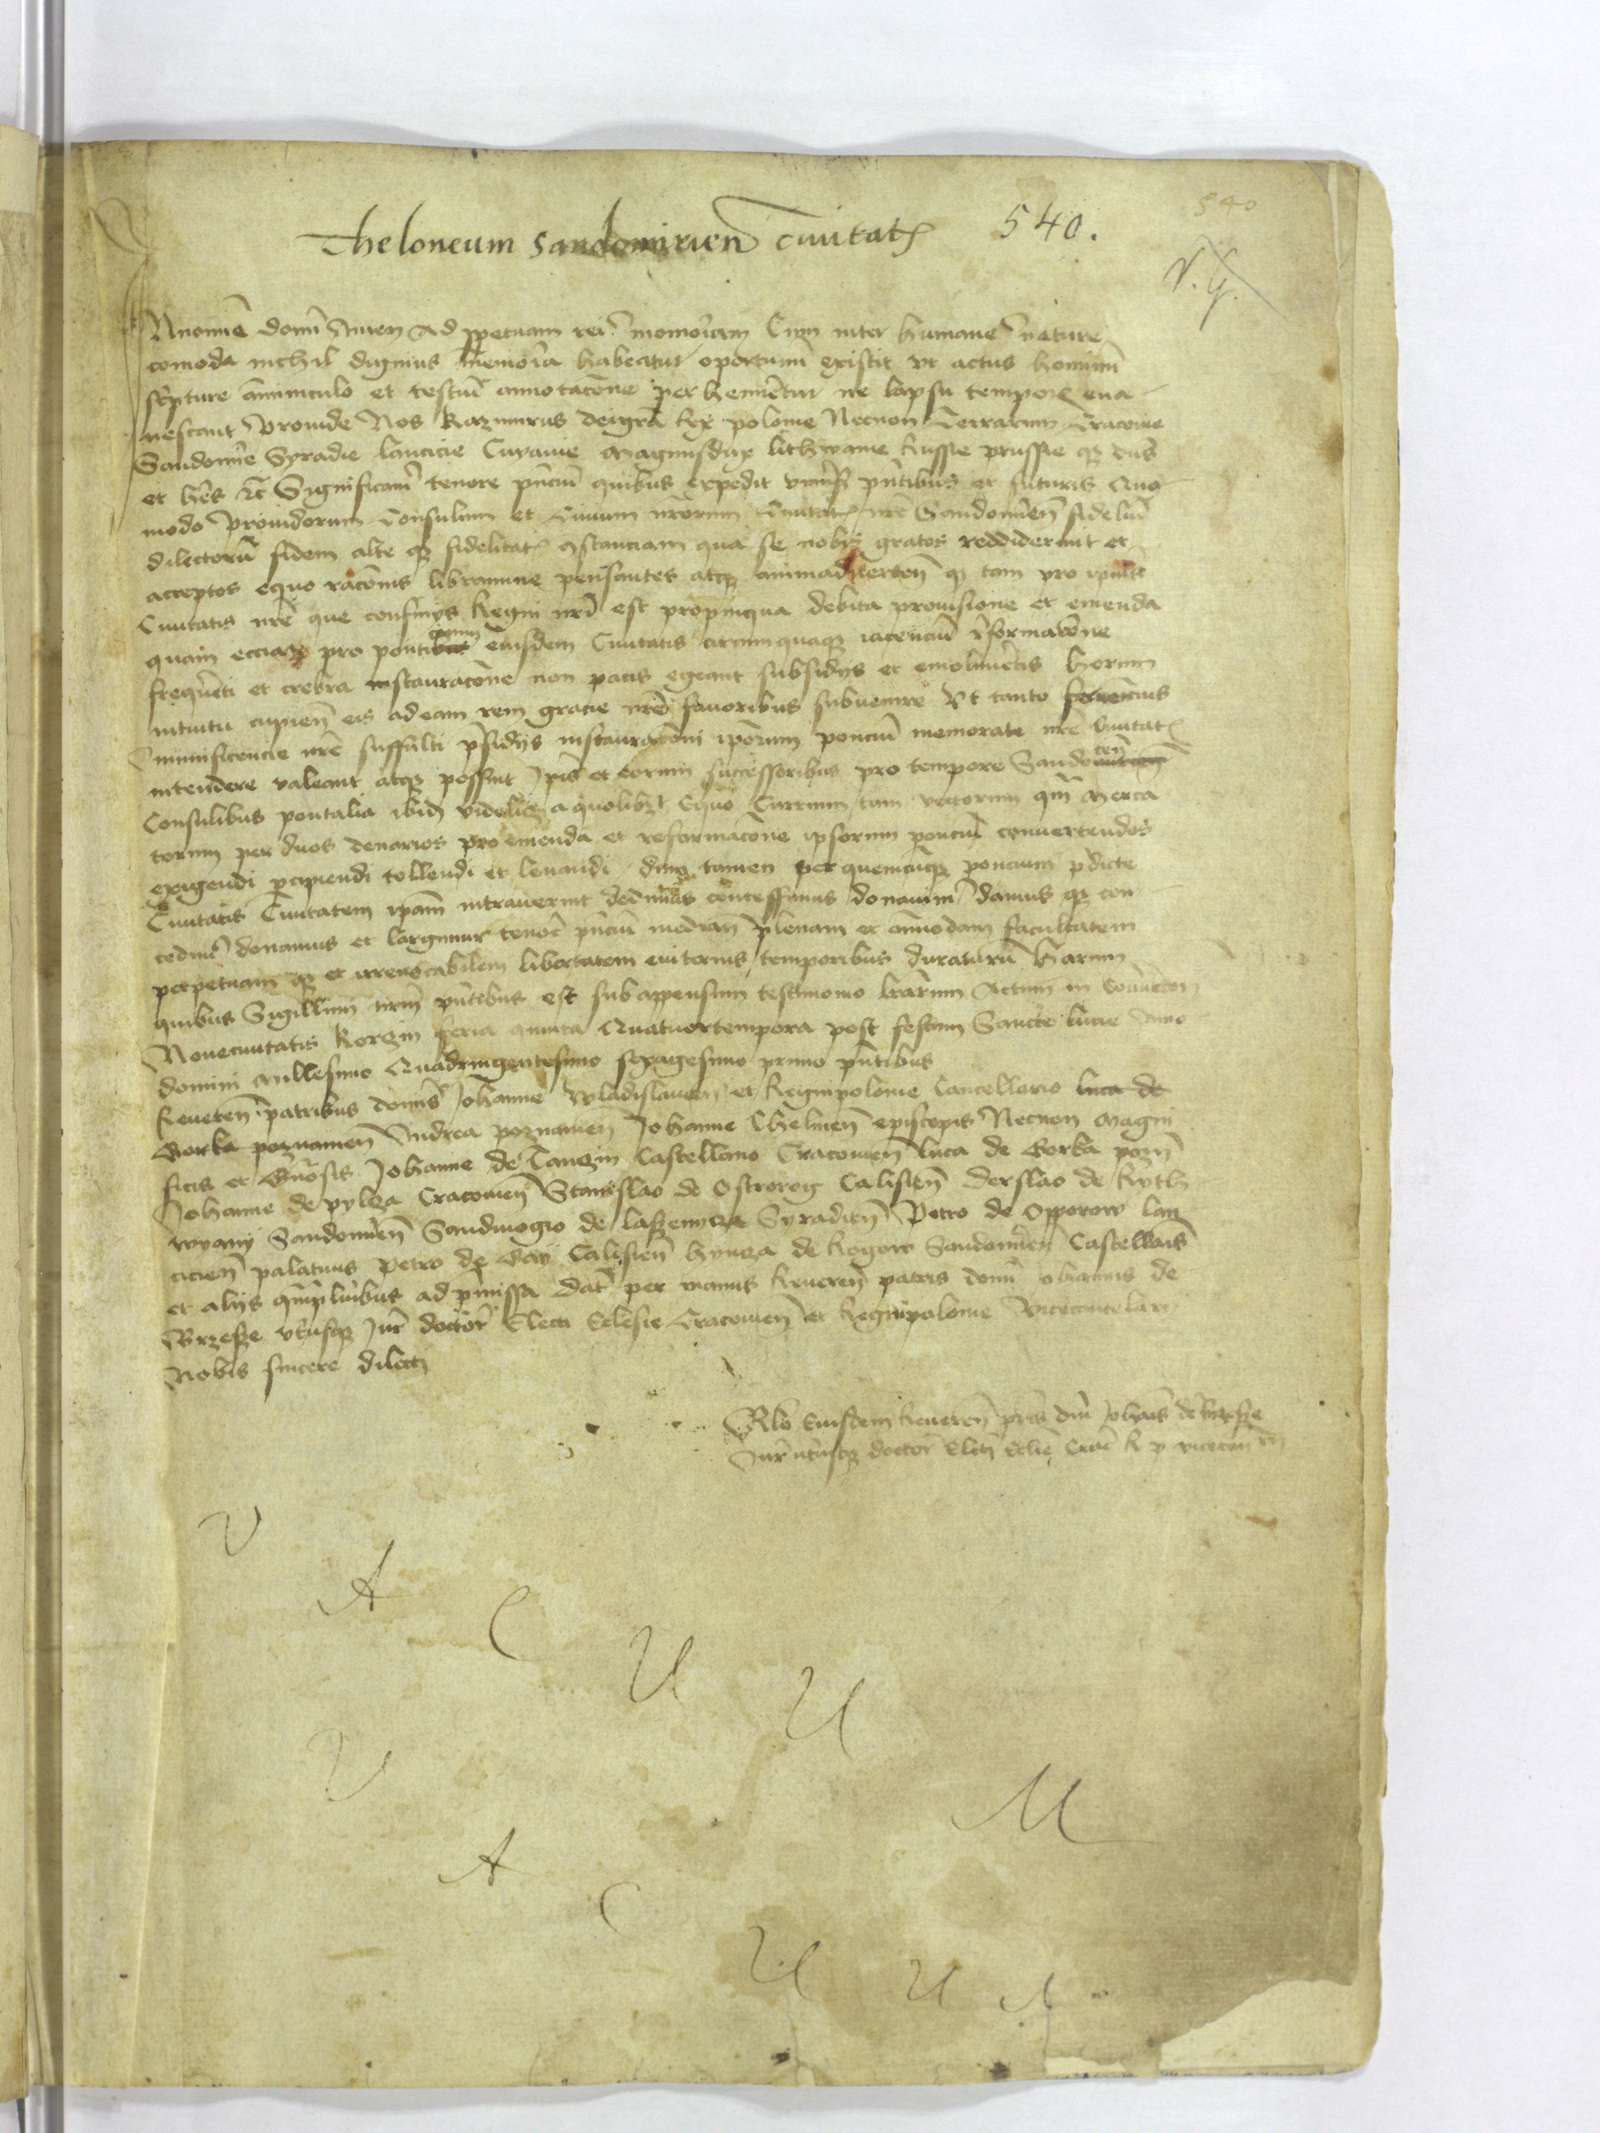 Theloneum Sandomirien Civitatꝭ 540.
540
V. G.
Nnomīe domī Amen Ad ppetuam rei memoriam Cum inter humane nature
comoda nichil dignius memoria habeatur oportunū existit vt actus hominū
scripture āminiculo et testiū annotacōne perhennētur ne lapsu temporꝭ eua
nescant Proinde Nos Kazimirus deigrā Rex polonie Necnon Terrarum Cracouie
Sandomīre Syradie lancicie Cuyauie Magnusdux lithwanie Russie prussie qꝫ dns
et hēs zc̄ Significam⁹ tenore pn̄ciū quibus expedit vniūsis pn̄tibus et futuris Quo
modo prouidorum Consulum et Ciuium nr̄orum Ciuitatꝭ nrē Sandomīreñ fideliū
dilectorū fidem alte qꝫ fidelitatꝭ ꝯstanciam qua se nobis gratos reddiderunt et
acceptos equo racōnis libramine pensantes atqꝫ animadverteñ qꝫ tam pro ipsius
Ciuitatis nrē que confinijs Regni nrī est propinqua debita prouisione et emenda
quam eciam pro pontibus cium eiusdem Ciuitatis circumquaqꝫ iacenciū reformacōne
frequēti et crebra instauracōne non paucis egeant subsidijs et emolimētis horum
intuitu cupieñ eis ad eam rem gracie nrē fauoribus subuenire Vt tanto feruencius
munificencie nrē suffulti psidijs instauracōni ipsorum ponciū memorate nrē Ciuitatꝭ
intendere valeant atqꝫ possint Ipīs et eorum successoribus pro tempore Sandomiricen
Consulibus pontalia ibidꝫ videlicꝫ a quolibꝫt Equo Curruum tam vectorum qm̄ Merca
torum per duos denarios pro emenda et reformacōne ipsorum ponciū conuertendos
exigendi pcipiendi tollendi et leuandi dum tamen per quemcūqꝫ poncium pdicte
Ciuitatis Ciuitatem ipam intrauerint dedimus concessimus donauim⁹ damus qꝫ con
cedim⁹ donamus et largimur tenore pn̄ciū mediañ plenam et ōmodam facultatem
perpetuam qꝫ et irreuocabilem libertatem euiternis temporibus duraturū Harum
quibus Sigillum nrm̄ pn̄tibus est subappensum testimonio lrārum Actum in Conuecon
Nouecuitatis Korczin feria quinta Quatuortempora post festum Sancte lucie Anno
domini Millesimo Quadringentesimo sexagesimo primo pn̄tibus
Reuereñ ī patribus domīs Johanne Wladislauieñ et Regnipolonie Cancellario luca de
Gorka poznanieñ Andrea poznanieñ Johanne Chelmeñ episcopis Necnon Magni
ficis et Gn̄osis Johanne de Tanczin Castellano Cracouieñ luca de Gorka pozñ
Johanne de pylcza Cracouieñ Stanislao de Ostrorog Calisieñ derslao de Ryth
wyany Sandomīreñ Sandiuogio de laszenycze Syradieñ Petro de Opporow lan
cicieñ palatinis Petro de Gay Calisieñ hyncza de Rogow Sandomīreñ Castellanis
et alijs qmplurībus ad pmissa Dat per manus Reuereñ patris domī Johannis de
Brzesze vtriusqꝫ Jur⁹ doctor⁹ Electi Eclesie Cracouieñ et Regnipolonie Vicecancelarij
Nobis sincere dilecti
Rlō Eiusdem Reuereñ prīs dm̄i Johānis de brzesze
Jur⁹ utriusqꝫ doctor⁹ Elcti Eclīe Crac R p vicecan
V A C U U M
V A C U U M